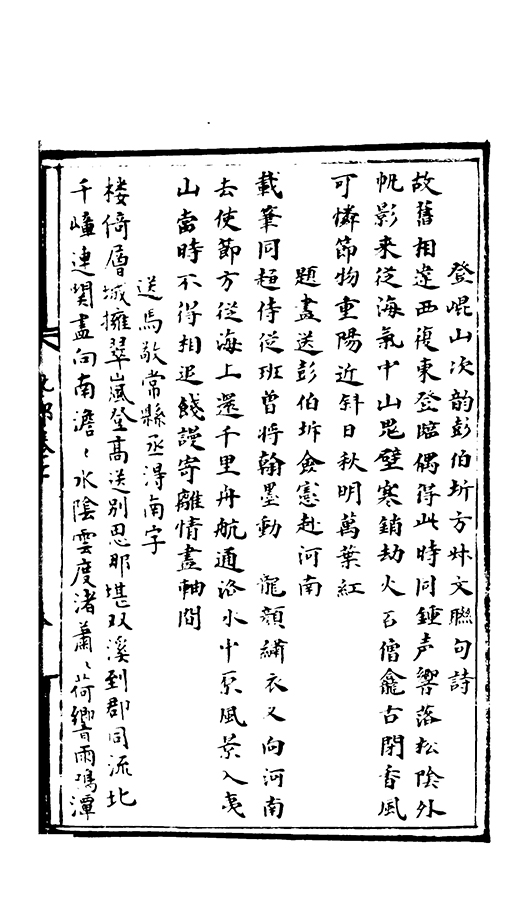 登崐山次韵彭伯圻方妹文聯句詩
故舊相違西復東登臨偶得此時同鍾声響落松陰外
帆影来従海氣中山毘壁寒銷劫火石僧龕古閉香風
可憐節物重陽近斜日秋明萬葉紅
題畫送彭伯圻僉憲赴河南
載筆同趨侍従班曾将翰墨動 龍顔繡衣又向河南
去使節方従海上還千里舟航通洛水中原風景入夷
山當時不得相追餞謾寄離情畫軸間
送馬敬常縣丞得南字
楼倚層城擁翠嵐登高送别思那堪双溪到郡同流北
千嶂連関盡向南澹〻水陰雲度渚蕭〻荷響雨鳴潭